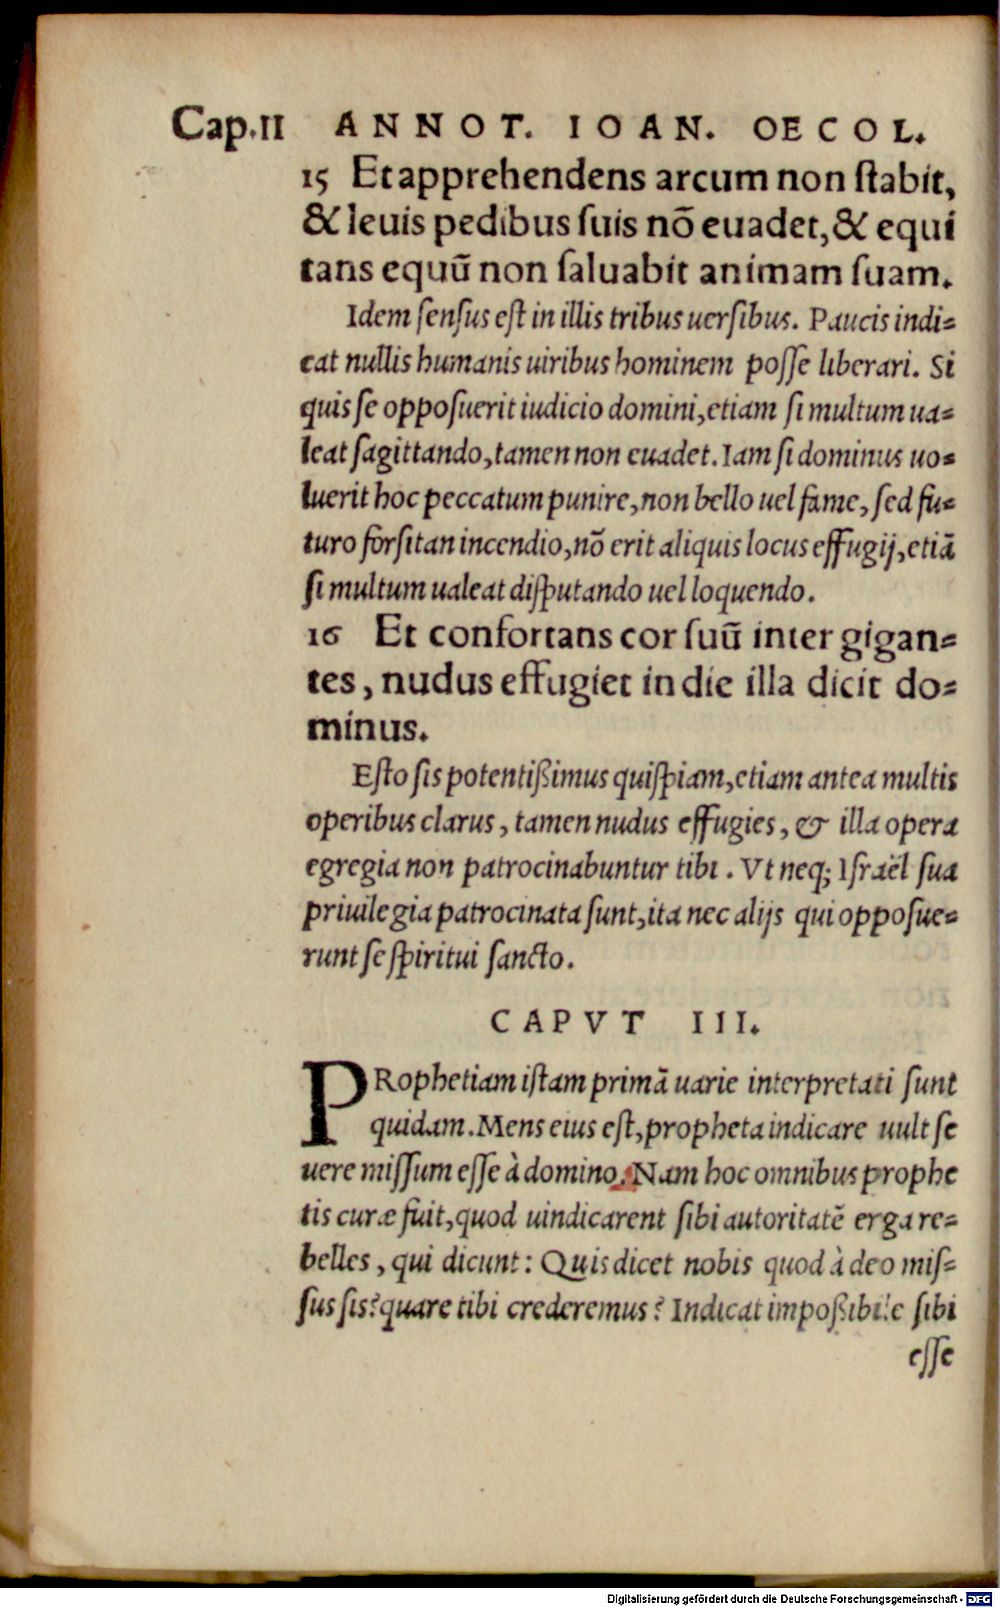 Cap.II ANNOT. IOAN. OECOL.
15 Et apprehendens arcum non ſtabit,
& leuis pedibus ſuis nō euadet, & equi
tans equū non ſaluabit animam ſuam.
Idem ſenſus eſt in illis tribus uerſibus. Paucis indi=
cat nullis humanis uiribus hominem poſſe liberari. Si
quis ſe oppoſuerit iudicio domini, etiam ſi multum ua=
leat ſagittando, tamen non euadet. Iam ſi dominus uo=
luerit hoc peccatum punire, non bello uel fame, ſed fu=
turo forſitan incendio, nō erit aliquis locus effugij, etiā
ſi multum ualeat diſputando uel loquendo.
16 Et confortans cor ſuū inter gigan=
tes, nudus effugiet in die illa dicit do=
minus.
Eſto ſis potentißimus quiſpiam, etiam antea multis
operibus clarus, tamen nudus effugies, & illa opera
egregia non patrocinabuntur tibi. Vt neq; Iſraël ſua
priuilegia patrocinata ſunt, ita nec alijs qui oppoſue=
runt ſe ſpiritui ſancto.
CAPVT III.
PRophetiam iſtam primā uarie interpretati ſunt
quidam. Mens eius eſt, propheta indicare uult ſe
uere miſſum eſſe à domino. Nam hoc omnibus prophe
tis curæ fuit, quod uindicarent ſibi autoritatē erga re=
belles, qui dicunt: Quis dicet nobis quod à deo miſ=
ſus ſis? quare tibi crederemus? Indicat impoßibile ſibi
eſſe
Digitalisierung gefördert durch die Deutsche Forschungsgemeinschaft - DFG